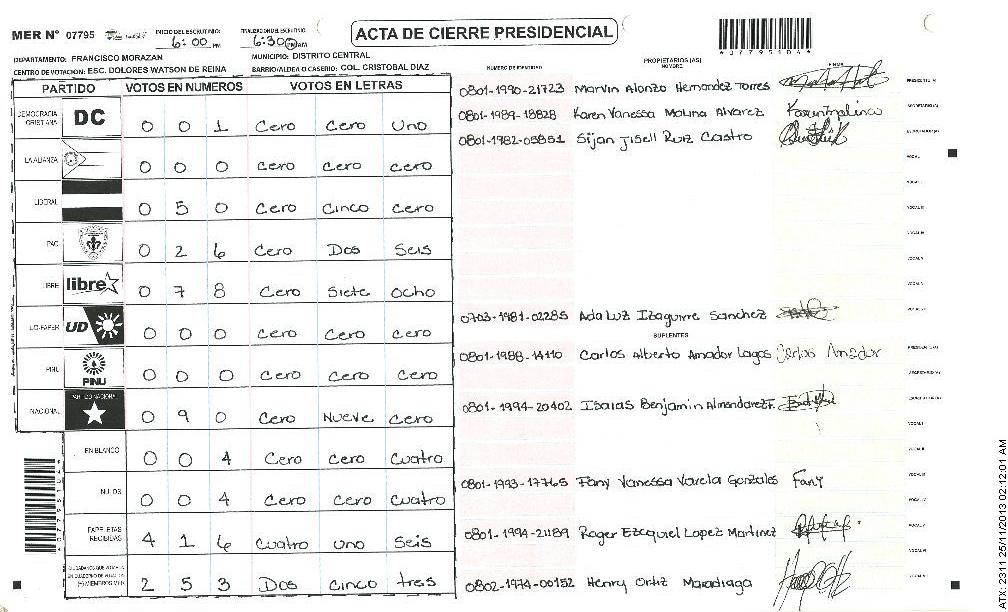 MER N° 07795
INICIO DEL ESCRUTINIO:
6:00 PM
FINALIZACION DEL ESCRUTINIO:
6:30 PM AM
ACTA DE CIERRE PRESIDENCIAL
DEPARTAMENTO: FRANCISCO MORAZAN
MUNICIPIO: DISTRITO CENTRAL
CENTRO DE VOTACION: ESC. DOLORES WATSON DE REINA
BARRIO/ALDEA O CASERIO: COL. CRISTOBAL DIAZ
PARTIDO VOTOS EN NUMEROS VOTOS EN LETRAS
DEMOCRACIA CRISTIANA DC 0 0 1 Cero Cero Uno
LA ALIANZA 0 0 0 Cero Cero Cero
LIBERAL 0 5 0 Cero Cinco Cero
PAC 0 2 6 Cero Dos Seis
LIBRE libre 0 7 8 Cero Siete Ocho
UD-FAPER UD 0 0 0 Cero Cero Cero
PINU PINU 0 0 0 Cero Cero Cero
NACIONAL PARTIDO NACIONAL 0 9 0 Cero Nueve Cero
EN BLANCO 0 0 4 Cero Cero Cuatro
NULOS 0 0 4 Cero Cero Cuatro
PAPELETAS RECIBIDAS 4 1 6 Cuatro Uno Seis
2 5 3 Dos Cinco tres
NUMERO DE IDENTIDAD
PROPIETARIOS (AS)
NOMBRE
FIRMA
0801-1990-21723 Marvin Alonzo Hernandez Torres
0801-1989-18828 Karen Vanessa Molina Alvarez
0801-1982-05851 Sijan Jisell Ruiz Castro
0703-1981-02285 Ada Luz Izaguirre Sanchez
SUPLENTES
0801-1988-14110 Carlos Alberto Amador Lagos Carlos Amador
0801-1994-20402 Isaias Benjamin Almendarez F.
0801-1993-17765 Fany Vanessa Varela Gonzales Fany
0801-1994-21189 Roger Ezequiel Lopez Martinez
0802-1974-00152 Henry Ortiz Maradiaga
ATX: 2311 25/11/2013 02:12:01 AM